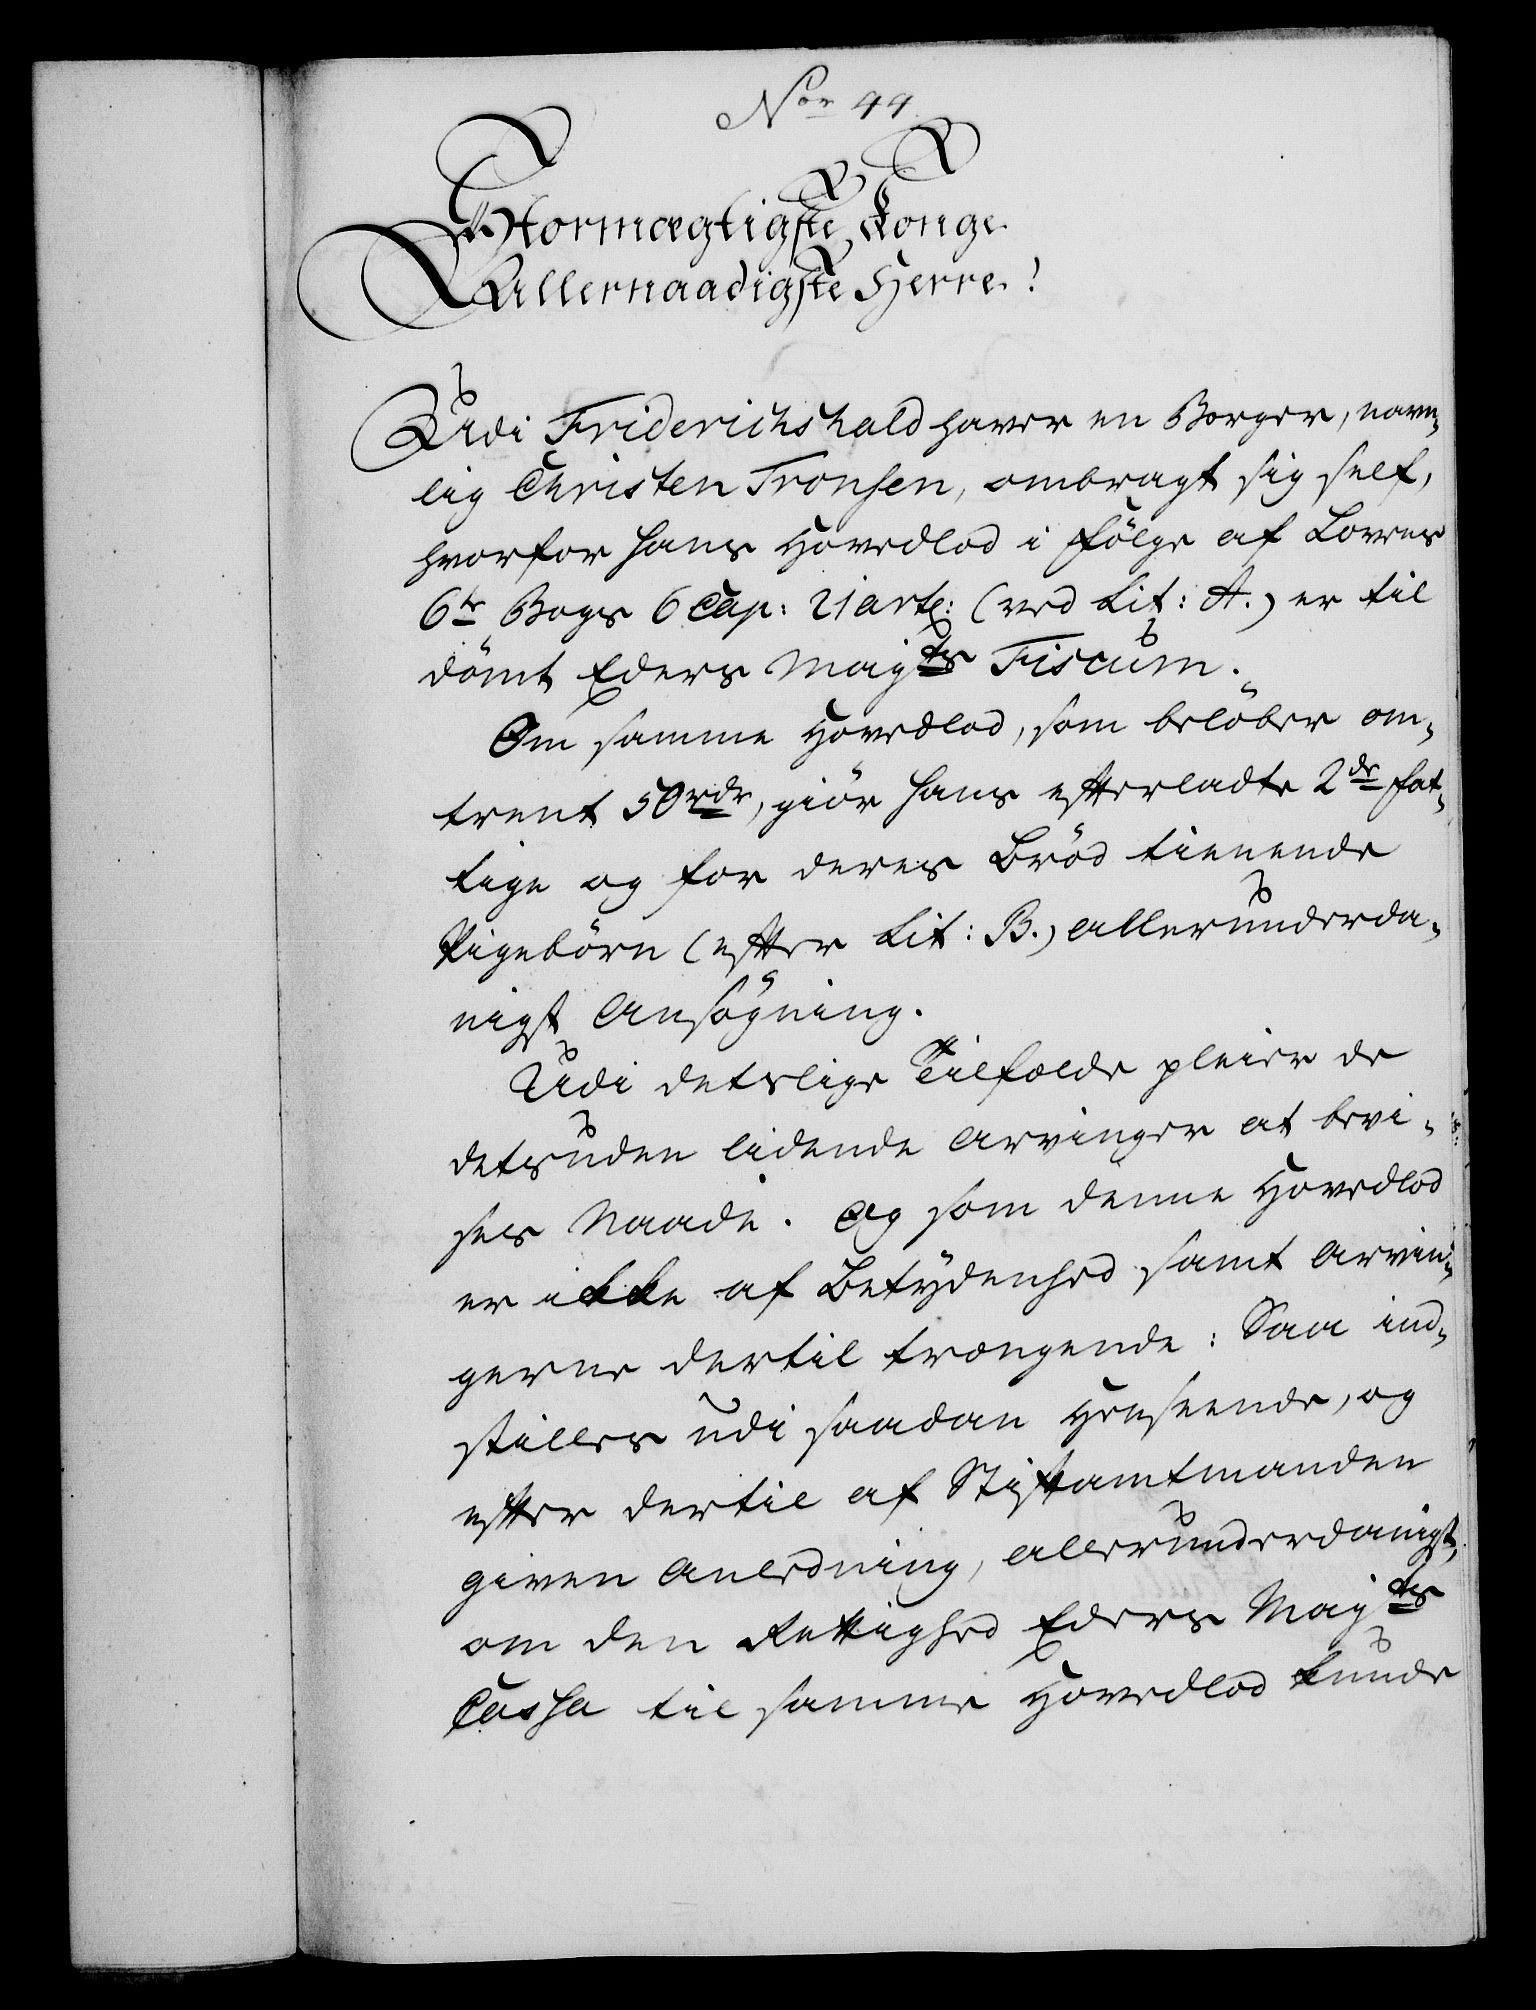 Nor 44
Stormægtigste Konge
Allernaadigste Herre!
Udi Friderichshald haver en Borger, navn-
lig Christen Tronsen, ombragt sig self,
hvorfor hans Hovedlod i Følge af Lovens
6te Bogs 6 Cap: 21 art: (ved Lit: A.) er til
dömt Eders Mayts Fiscum.
Om samme Hovedlod, som beløber om-
trent 50rdr, giør hans efterladte 2de fat-
tige og for deres Brød tienende
Pigebørn (efter Lit: B.) allerunderda-
nigst Ansøgning.
Udi deslige Tilfælde pleier de
desuden lidende Arvinger at bevi-
ses Naade. Og som denne Hovedlod
er ikke af Betydenhed samt Arvin-
gerne dertil trængende: Saa ind-
stilles udi saadan Henseende, og
efter dertil af Stiftamtmanden
given Anledning, allerunderdanigst,
om den Rettighed Eders Mayts
Cassa til samme Hovedlod kunde